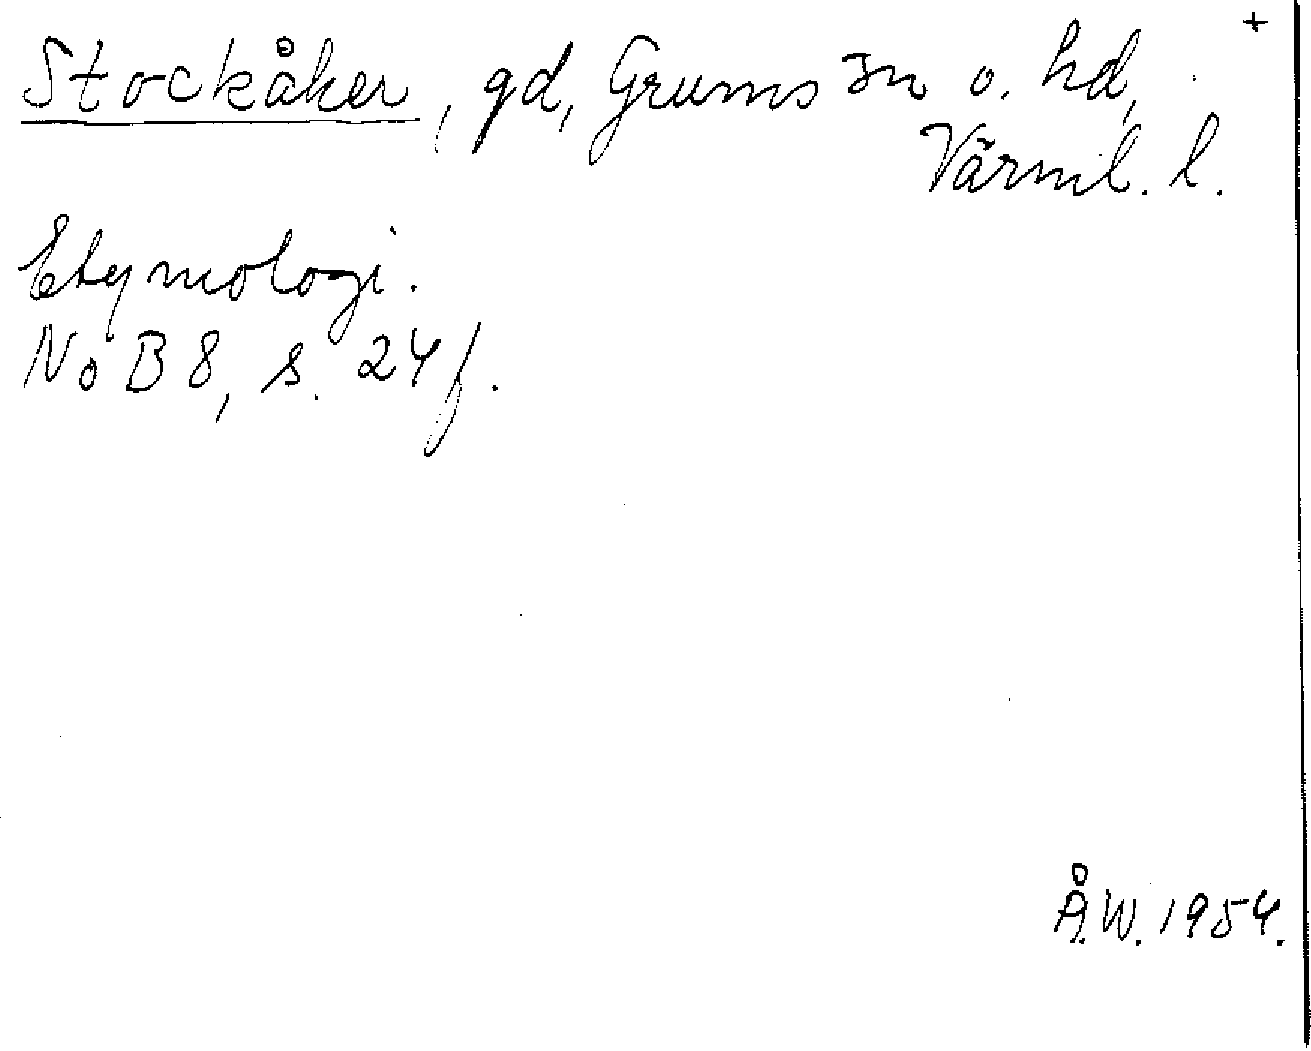 +
Stockåker, gd, Grums sn o. hd,
Värml. l.
Etymologi.
NoB 8, s. 24 f.
Å.W. 1954.